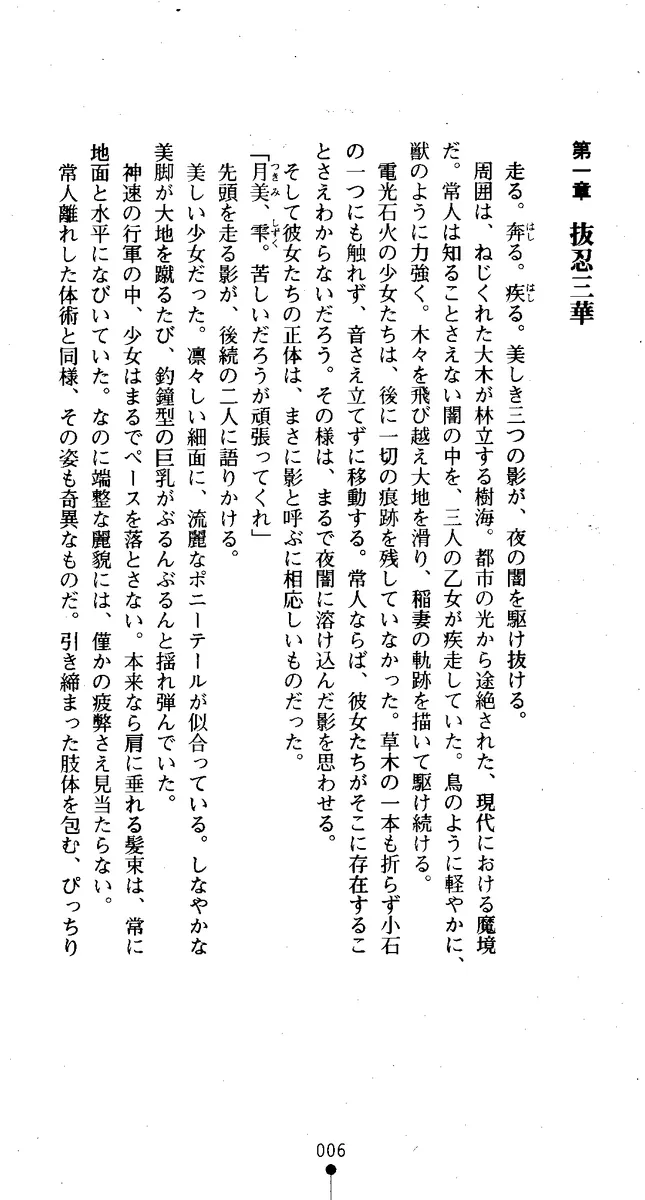 第一章　抜忍三華
走る。奔る。疾る。美しき三つの影が、夜の闇を駆け抜ける。
周囲は、ねじくれた大木が林立する樹海。都市の光から途絶された、現代における魔境
だ。常人は知ることさえない闇の中を、三人の乙女が疾走していた。鳥のように軽やかに、
獣のように力強く。木々を飛び越え大地を滑り、稲妻の軌跡を描いて駆け続ける。
電光石火の少女たちは、後に一切の痕跡を残していなかった。草木の一本も折らず小石
の一つにも触れず、音さえ立てずに移動する。常人ならば、彼女たちがそこに存在するこ
とさえわからないだろう。その様は、まるで夜闇に溶け込んだ影を思わせる。
そして彼女たちの正体は、まさに影と呼ぶに相応しいものだった。
「月美、雫。苦しいだろうが頑張ってくれ」
先頭を走る影が、後続の二人に語りかける。
美しい少女だった。凛々しい細面に、流麗なポニーテールが似合っている。しなやかな
美脚が大地を蹴るたび、釣鐘型の巨乳がぶるんぶるんと揺れ弾んでいた。
神速の行軍の中、少女はまるでペースを落とさない。本来なら肩に垂れる髪束は、常に
地面と水平になびいていた。なのに端整な麗貌には、僅かの疲弊さえ見当たらない。
常人離れした体術と同様、その姿も奇異なものだ。引き締まった肢体を包む、ぴっちり
006